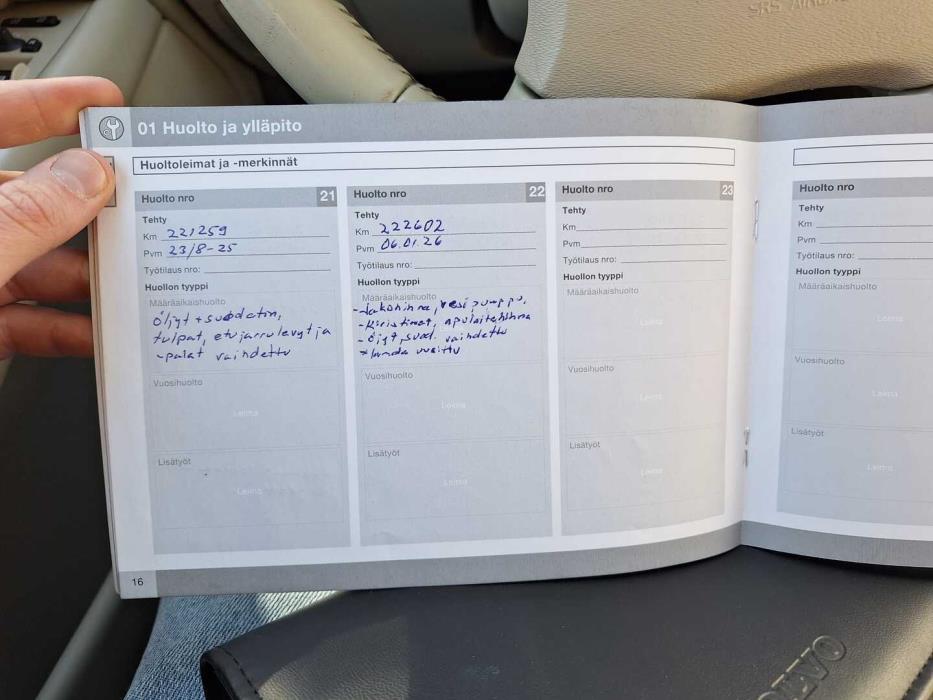 SRS AIRBAG
01 Huolto ja ylläpito
Huoltoleimat ja -merkinnät
Huolto nro 21
Tehty
Km 221259
Pvm 23/8-25
Työtilaus nro:
Huollon tyyppi
Määräaikaishuolto
Öljyt + suodatin,
tulpat, etujarrulevyt ja
-palat vaihdettu
Vuosihuolto
Leima
Lisätyöt
Leima
Huolto nro 22
Tehty
Km 222602
Pvm 06.01.26
Työtilaus nro:
Huollon tyyppi
Määräaikaishuolto
-Jakohihna, vesipumppu.
-Kiristimet, apulaitehihna
-Öljyt, suod. vaihdettu
vaihdettu
Vuosihuolto
Leima
Lisätyöt
Leima
Huolto nro 23
Tehty
Km
Pvm
Työtilaus nro:
Huollon tyyppi
Määräaikaishuolto
Leima
Vuosihuolto
Leima
Lisätyöt
Leima
Huolto nro
Tehty
Km
Pvm
Työtilaus nro:
Huollon tyyppi
Määräaikaishuolto
Leima
Vuosihuolto
Leima
Lisätyöt
Leima
16
VOLVO